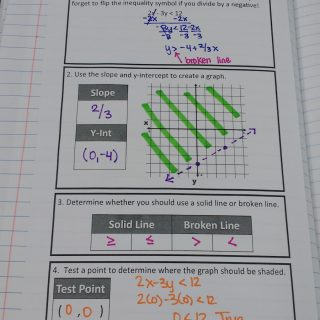 forget to flip the inequality symbol if you divide by a negative!
2x - 3y < 12
-2x -2x
-3y < 12 - 2x
-3 -3 -3
y > -4 + 2/3 x
broken line
2. Use the slope and y-intercept to create a graph.
Slope
2/3
Y-Int
(0,-4)
x
y
3. Determine whether you should use a solid line or broken line.
Solid Line Broken Line
≥ ≤ > <
4. Test a point to determine where the graph should be shaded.
Test Point
2x-3y < 12
(0,0)
2(0)-3(0) < 12
0 < 12 True